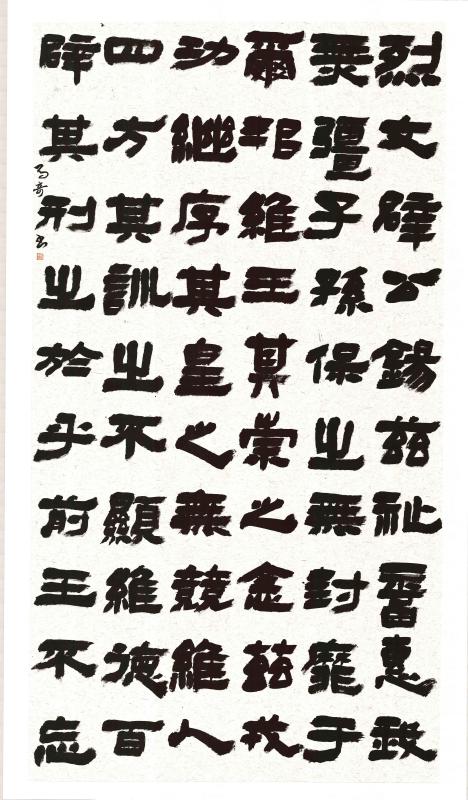 烈文辟公錫茲祉福惠我
無疆子孫保之無封靡于
爾邦維王其崇之念茲戎
功繼序其皇之無競維人
四方其訓之不顯維德百
辟其刑之於乎前王不忘